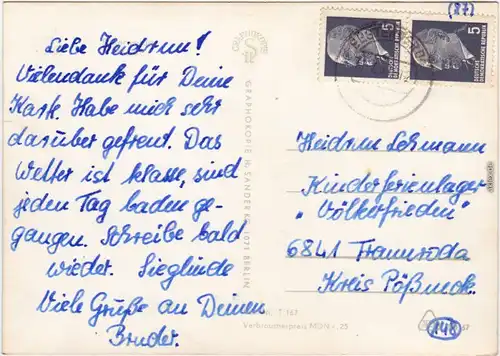 Liebe Heidrun!
Vielendank für Deine
Karte. Habe mich sehr
darüber gefreut. Das
Wetter ist klasse, sind
jeden Tag baden ge-
gangen. Schreibe bald
wieder. Sieglinde
Viele Grüße an Deinen
Bruder.
GRAPHOKOPIE H. SANDER KG, 1071 BERLIN
T 167
Verbraucherpreis MDN -,25
(27)
5
DEUTSCHE
DEMOKRATISCHE REPUBLIK
5
DEUTSCHE
DEMOKRATISCHE REPUBLIK
Heidrun Lehmann
Kinderferienlager
"Völkerfrieden"
6841 Trannroda
Kreis Pößneck.
148
67